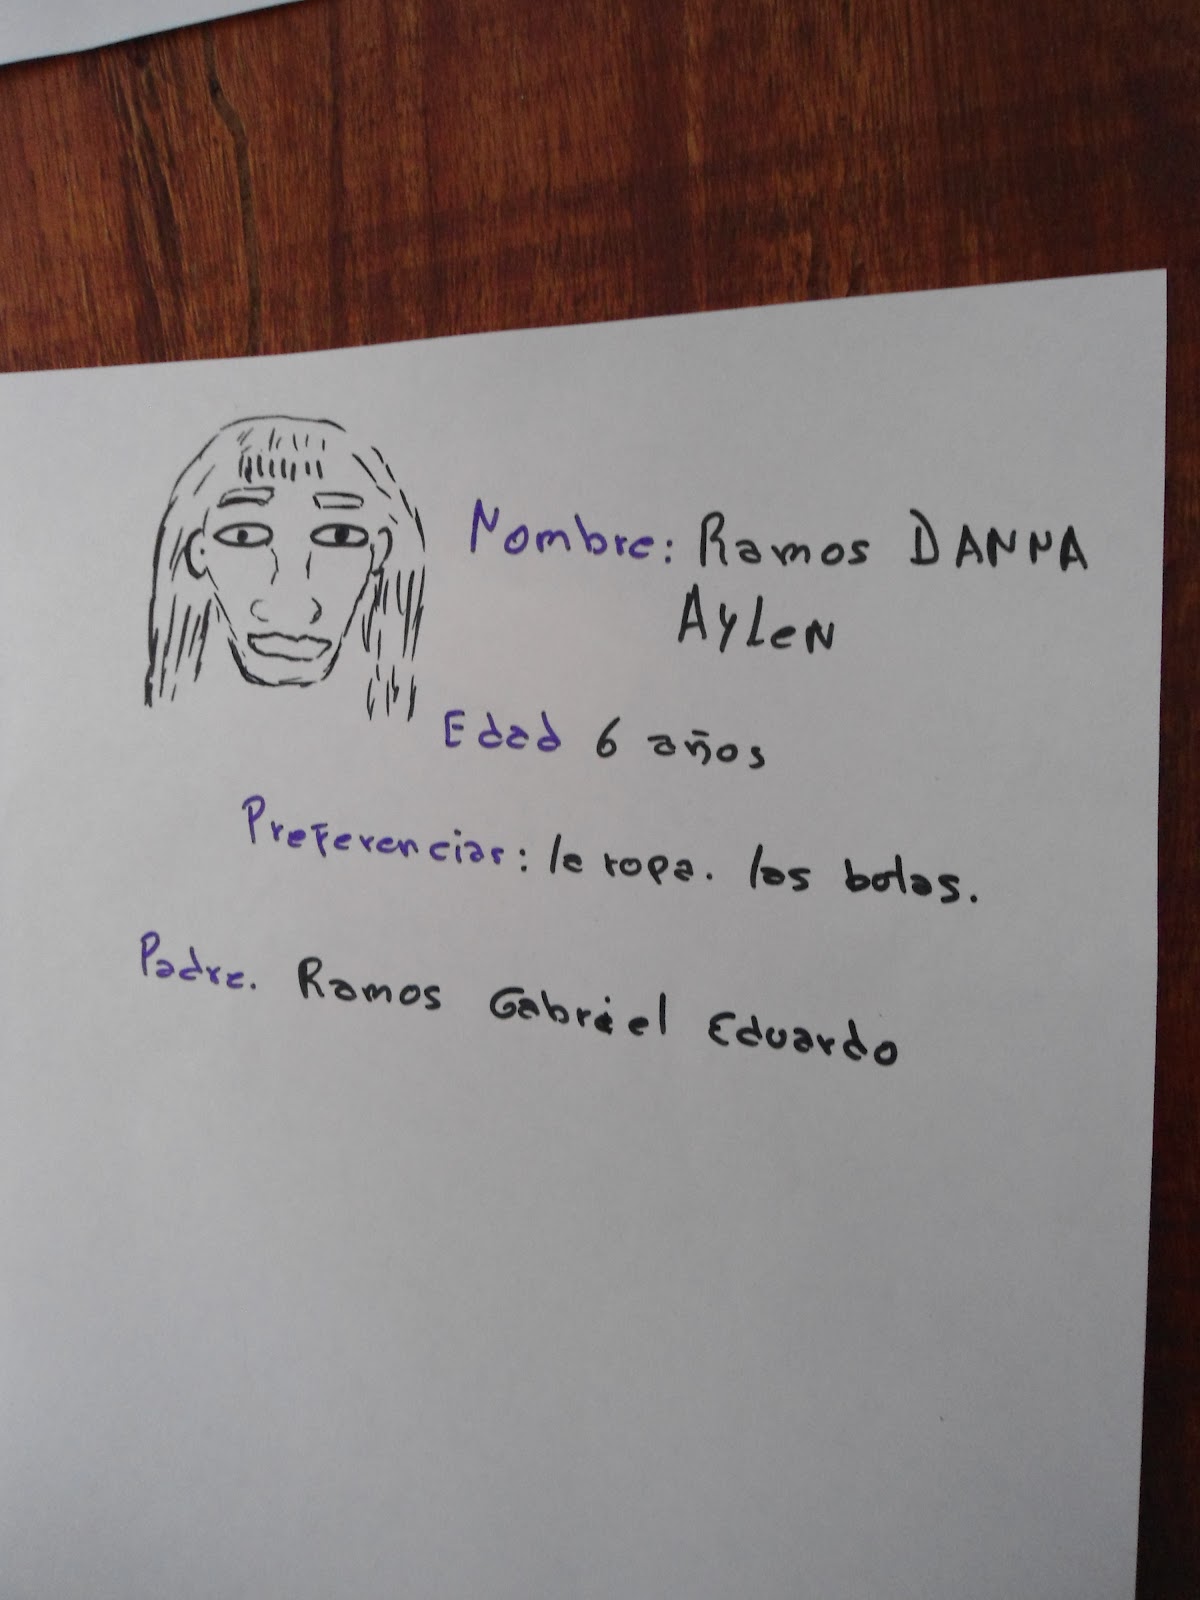 Nombre: Ramos DANNA
AYLeN
Edad 6 años
Preferencias: la ropa. las bolas.
Padre. Ramos Gabriel Eduardo